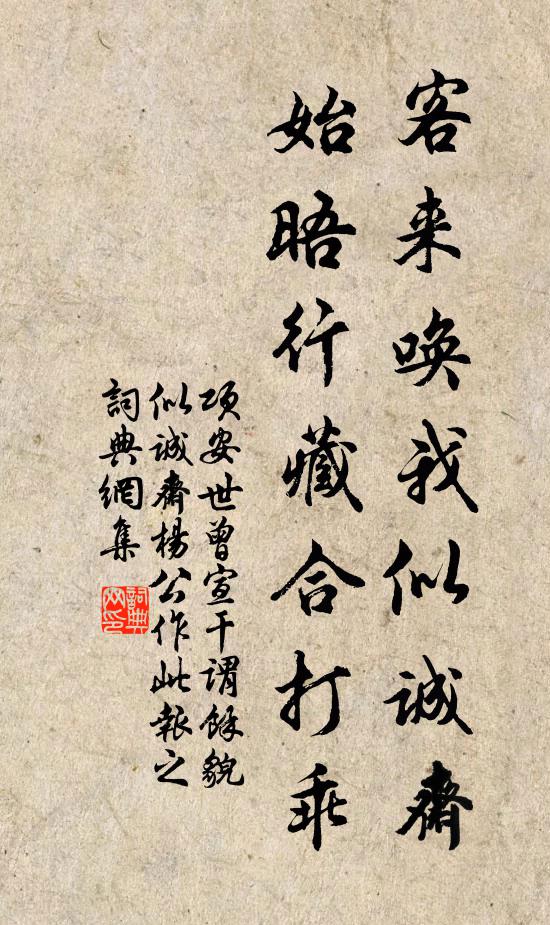 客来唤我似诚斋
始晤行藏合打乖
项安世曾宣干谓馀貌
似诚斋杨公作此报之
词典網集
詞典網印